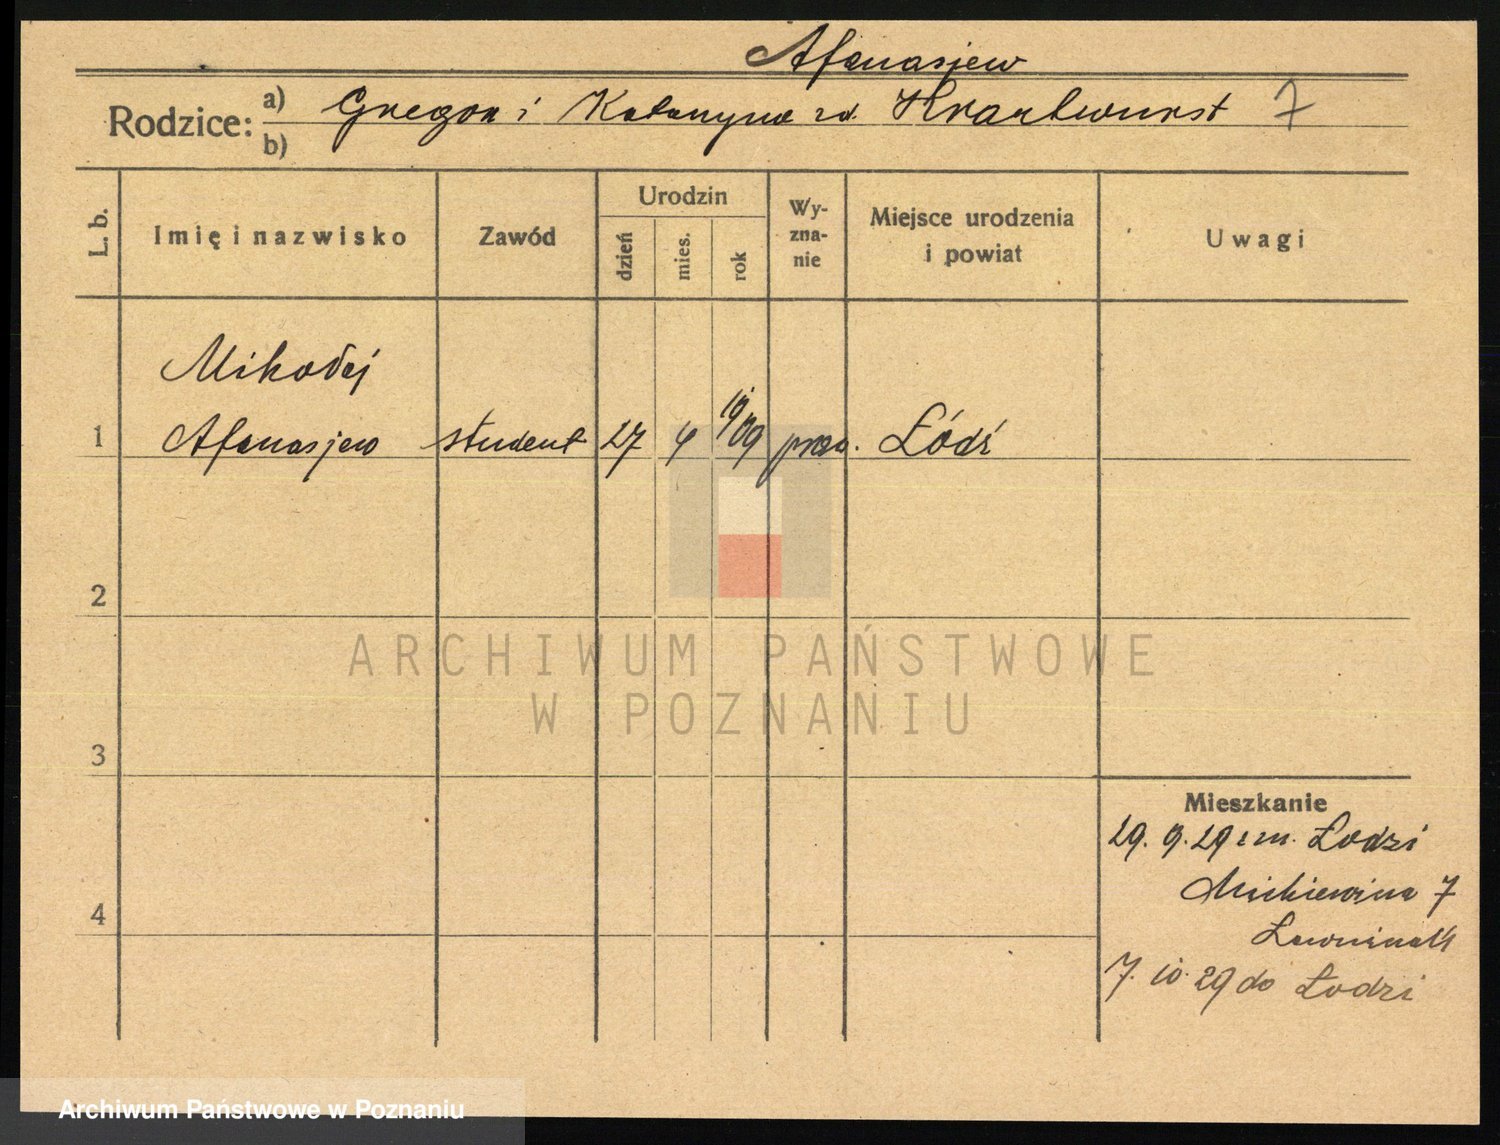 Afanasjew
Rodzice: a) Gregor i Katarzyna zd. Krautwurst 7
b)
L. b. Imię i nazwisko Zawód Urodzin dzień mies. rok Wyznanie Miejsce urodzenia i powiat Uwagi
Mikołaj
1 Afanasjew student 27 4 19/09 praw. Łódź
2
ARCHIWUM PAŃSTWOWE
W POZNANIU
3
Mieszkanie
29. 9. 29 z m. Łodzi
Mickiewicza 7
4
7. 10. 29 do Łodzi
Archiwum Państwowe w Poznaniu